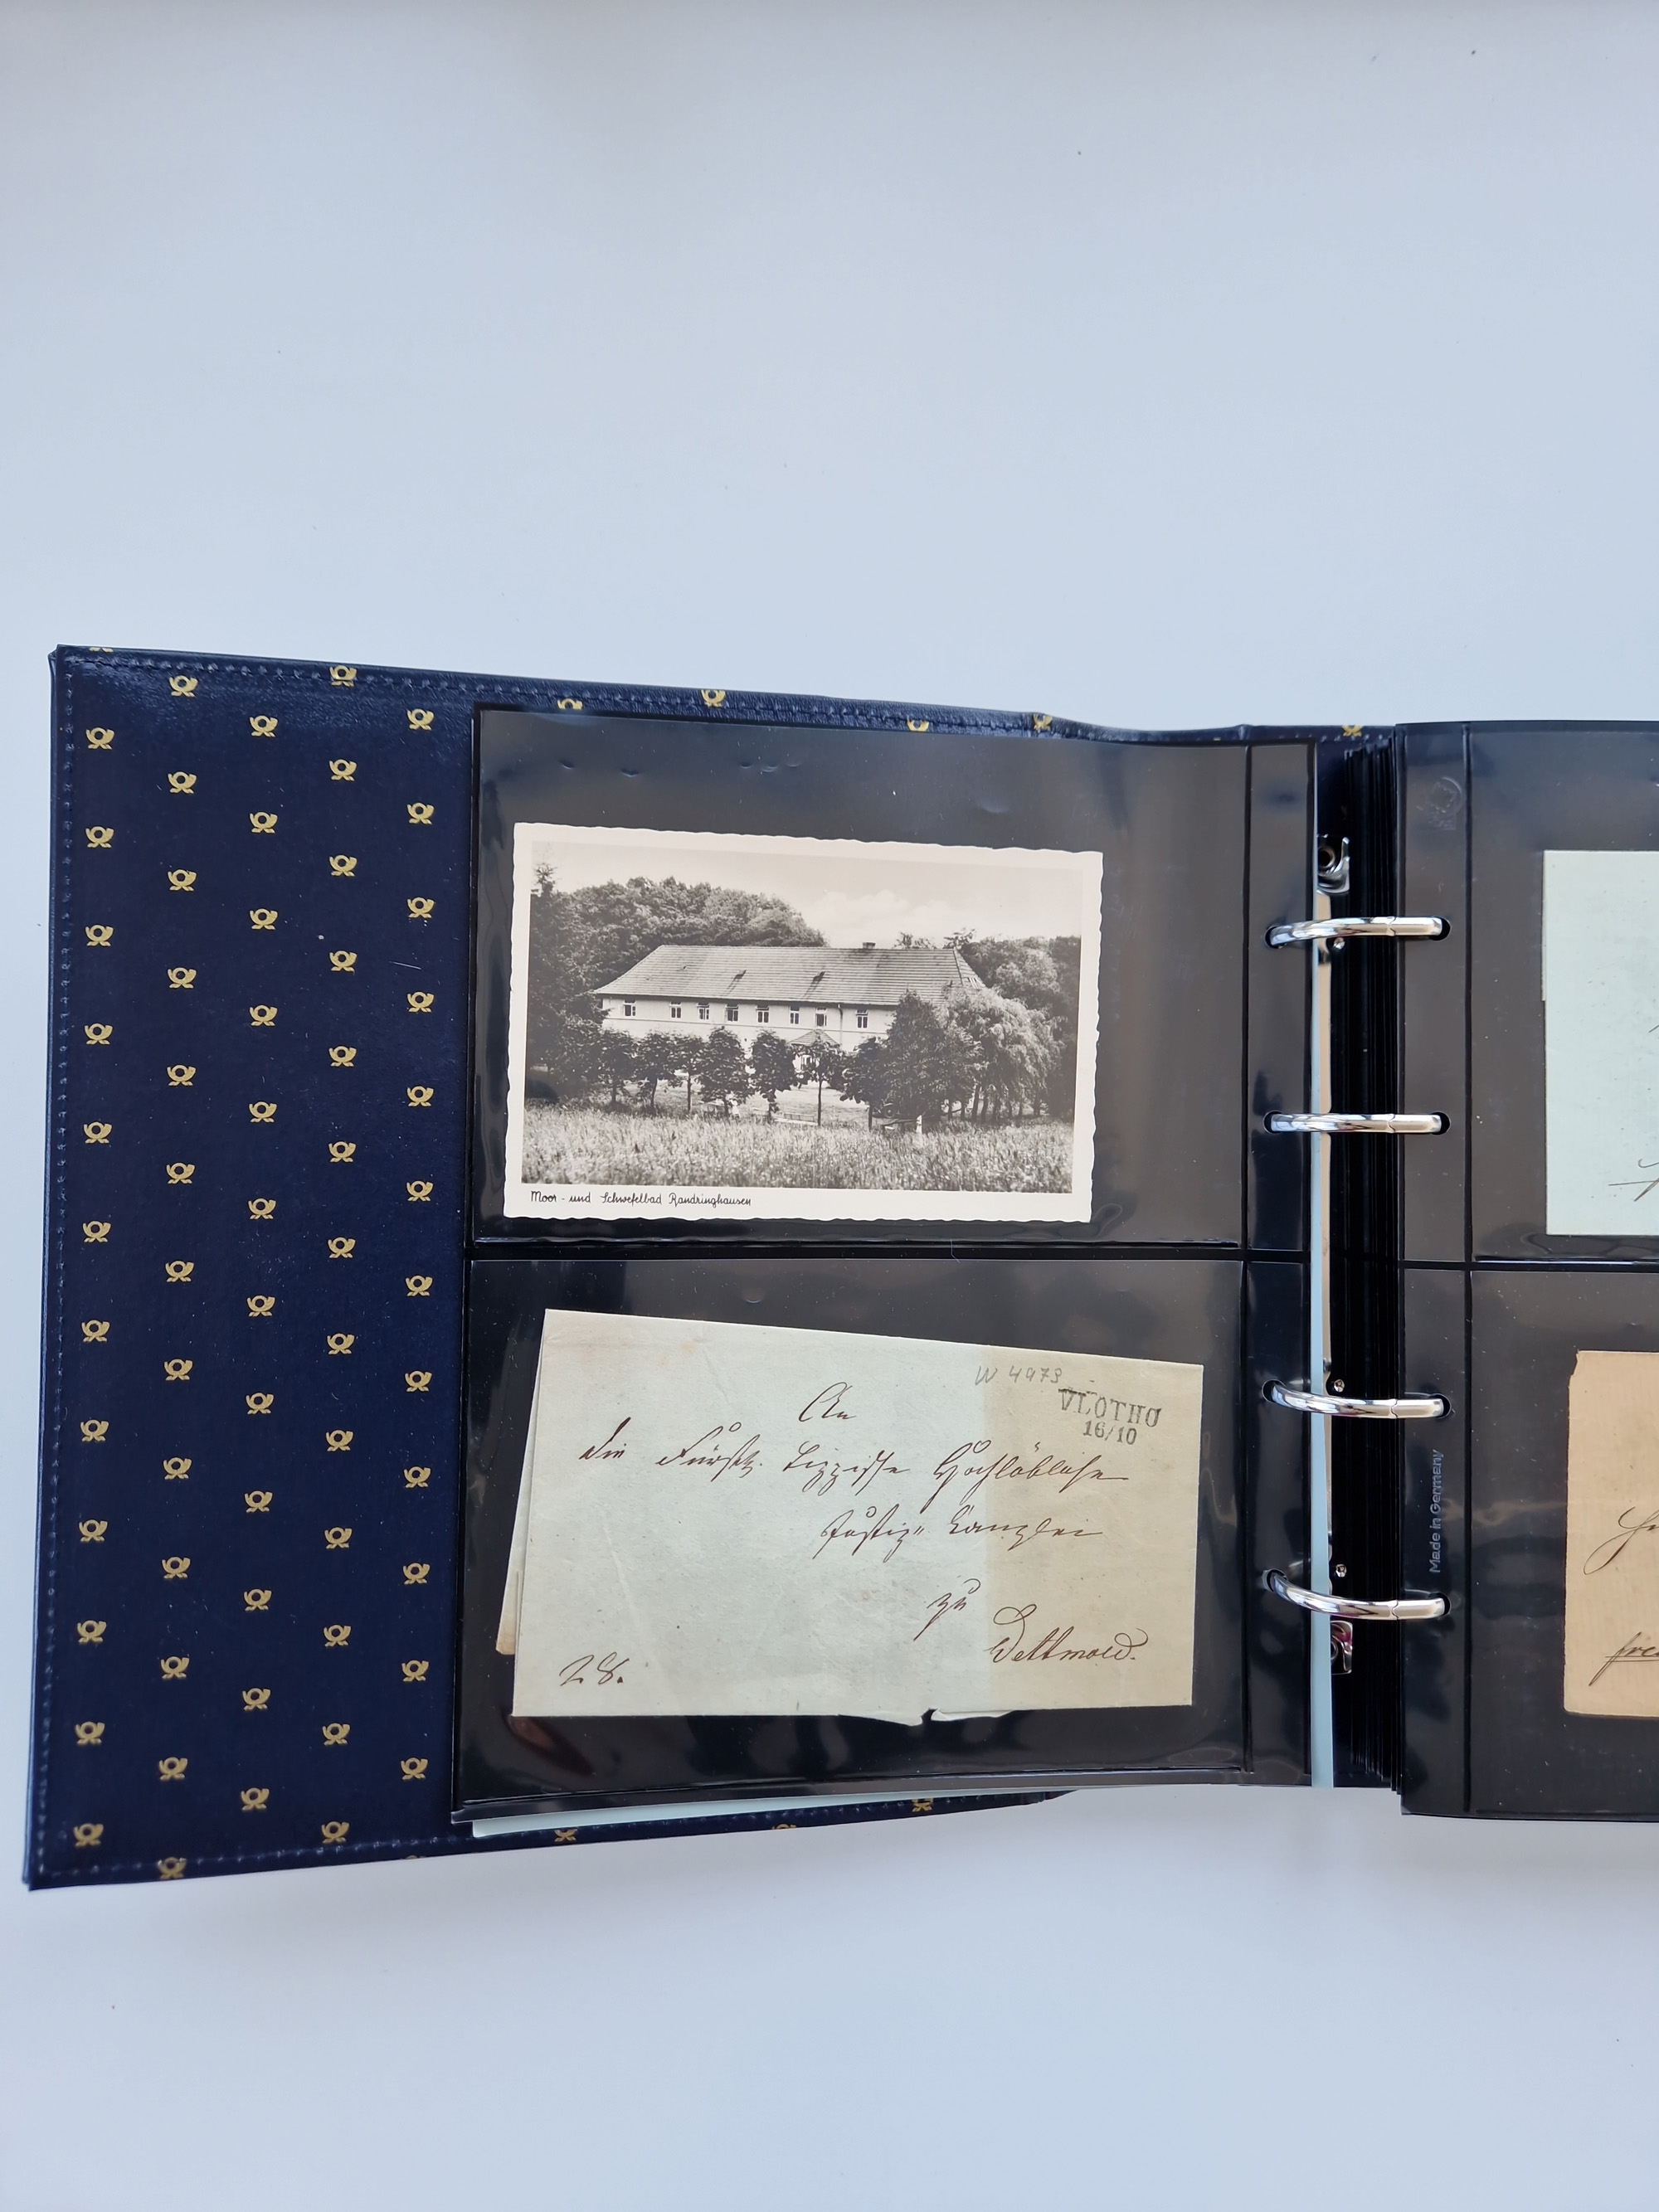 Moor - und Schwefelbad Randringhausen
W 4973
VLOTHO
16/10
An
die Fürstl. Lippische Hochlöbliche
Justiz" Canzlei
zu
Dettmold.
28.
Made in Germany